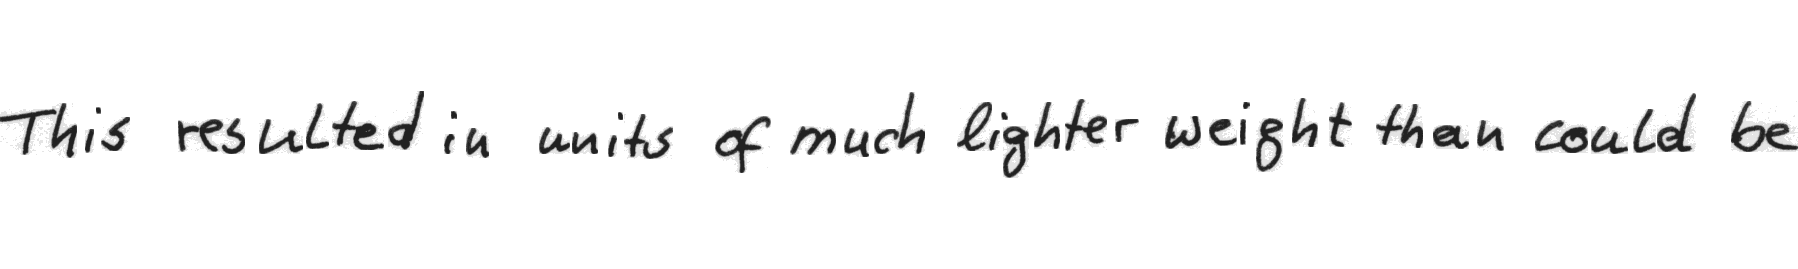 This resulted in units of much lighter weight than could be